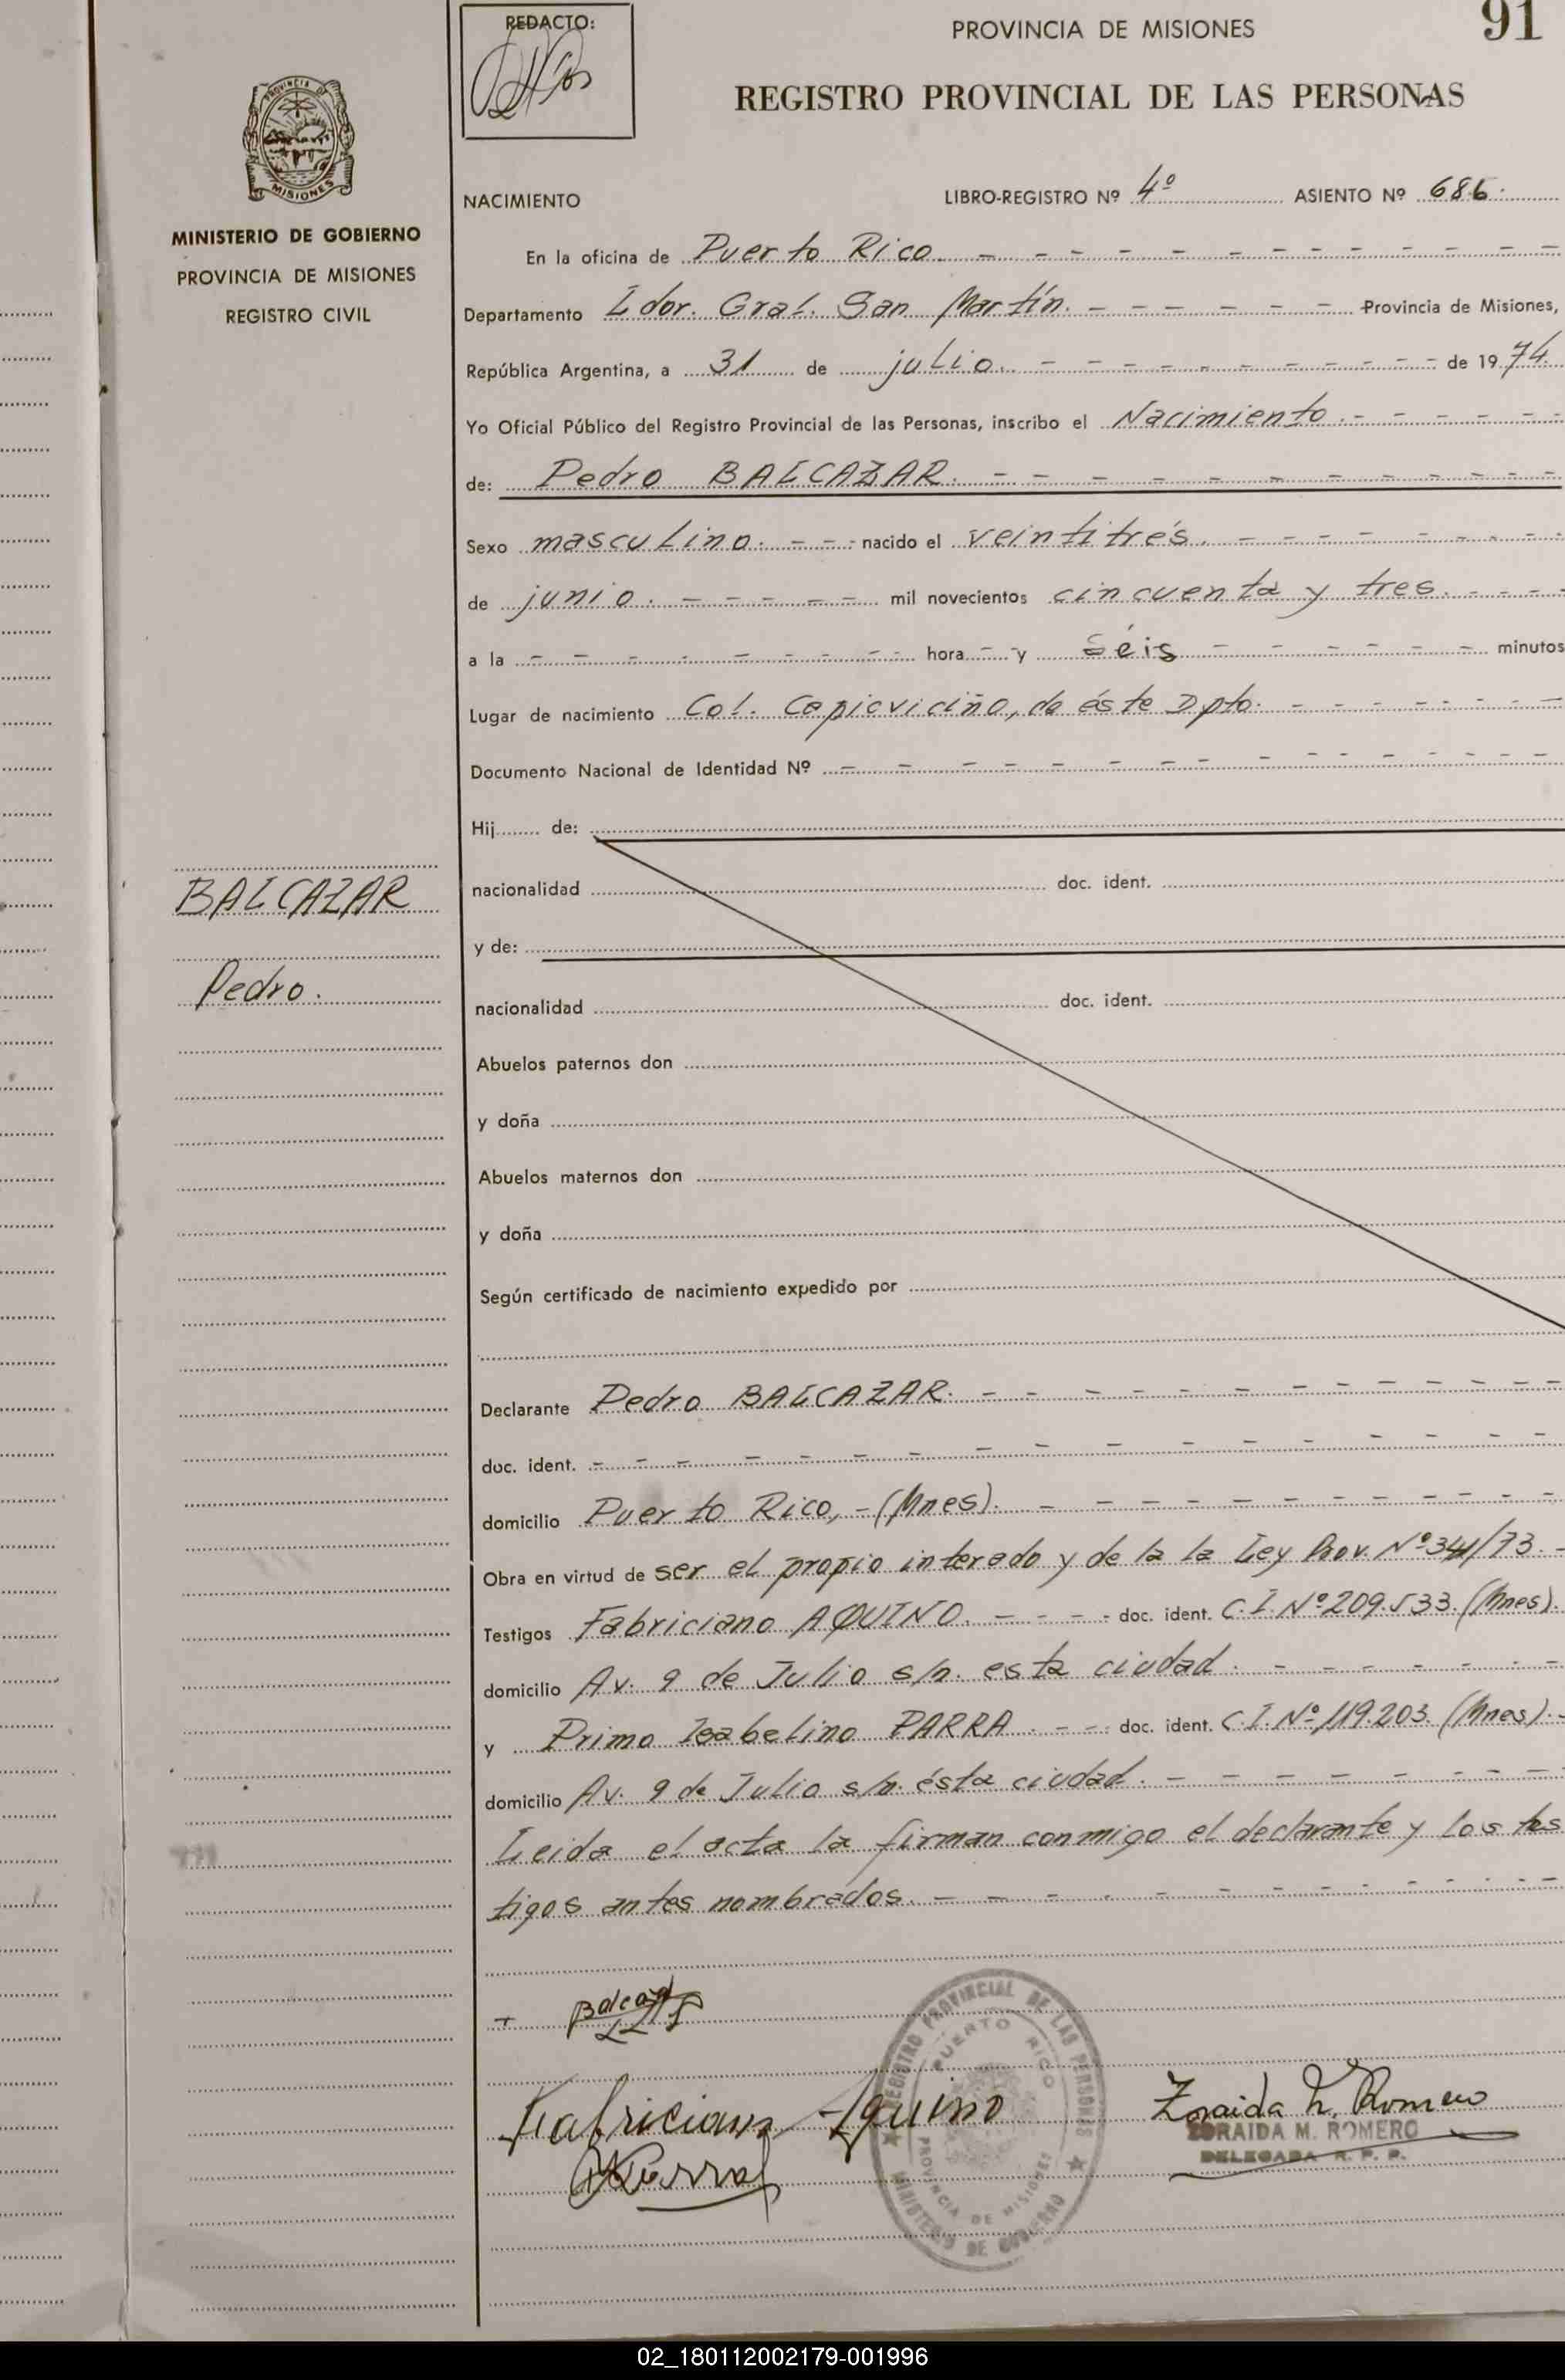 REDACTO:
PROVINCIA DE MISIONES
91
REGISTRO PROVINCIAL DE LAS PERSONAS
PROVINCIA D
MISIONES
MINISTERIO DE GOBIERNO
PROVINCIA DE MISIONES
REGISTRO CIVIL
NACIMIENTO LIBRO-REGISTRO Nº 4º ASIENTO Nº 686.
En la oficina de Puerto Rico. - - - - - - - - - - -
Departamento Ldor. Gral. San Martín. - - - - - - Provincia de Misiones,
República Argentina, a 31 de julio. - - - - - - - - - - de 1974.
Yo Oficial Público del Registro Provincial de las Personas, inscribo el Nacimiento. - - - - - -
de: Pedro BALCAZAR. - - - - - - - - - - -
Sexo masculino. - - - nacido el veintitrés. - - - - - - - - -
de junio. - - - - - mil novecientos cincuenta y tres. - - - -
a la - - - - - - - - - hora - y séis - - - - - - - minutos
Lugar de nacimiento Col. Capioviciño, de éste Dpto. - - - - - - - -
Documento Nacional de Identidad Nº - - - - - - - - - - - - - -
Hij de:
nacionalidad doc. ident.
y de:
nacionalidad doc. ident.
Abuelos paternos don
y doña
Abuelos maternos don
y doña
Según certificado de nacimiento expedido por
BALCAZAR
Pedro.
Declarante Pedro BALCAZAR. - - - - - - - - - - -
doc. ident. - - - - - - - - - - - - - -
domicilio Puerto Rico, - (Mnes). - - - - - - - - - - -
Obra en virtud de ser el propio interado y de la la Ley Prov. Nº 341/73. -
Testigos Fabriciano AQUINO. - - - - doc. ident. C.I. Nº 209.533. (Mnes).
domicilio Av. 9 de Julio s/n. esta ciudad. - - - - - - -
y Primo Isabelino PARRA. - - - doc. ident. C.I. Nº 119.203. (Mnes). -
domicilio Av. 9 de Julio s/n. ésta ciudad. - - - - - - - - -
Leida el acta la firman conmigo el declarante y los tes
tigos antes nombrados. - - - - - - - - - - - -
+
Fabriciano Aquino
Zoraida M. Romero
ZORAIDA M. ROMERO
DELEGADA R. P. P.
REGISTRO PROVINCIAL DE LAS PERSONAS
PUERTO RICO
PROVINCIA DE MISIONES
MINISTERIO DE GOBIERNO
02_180112002179-001996